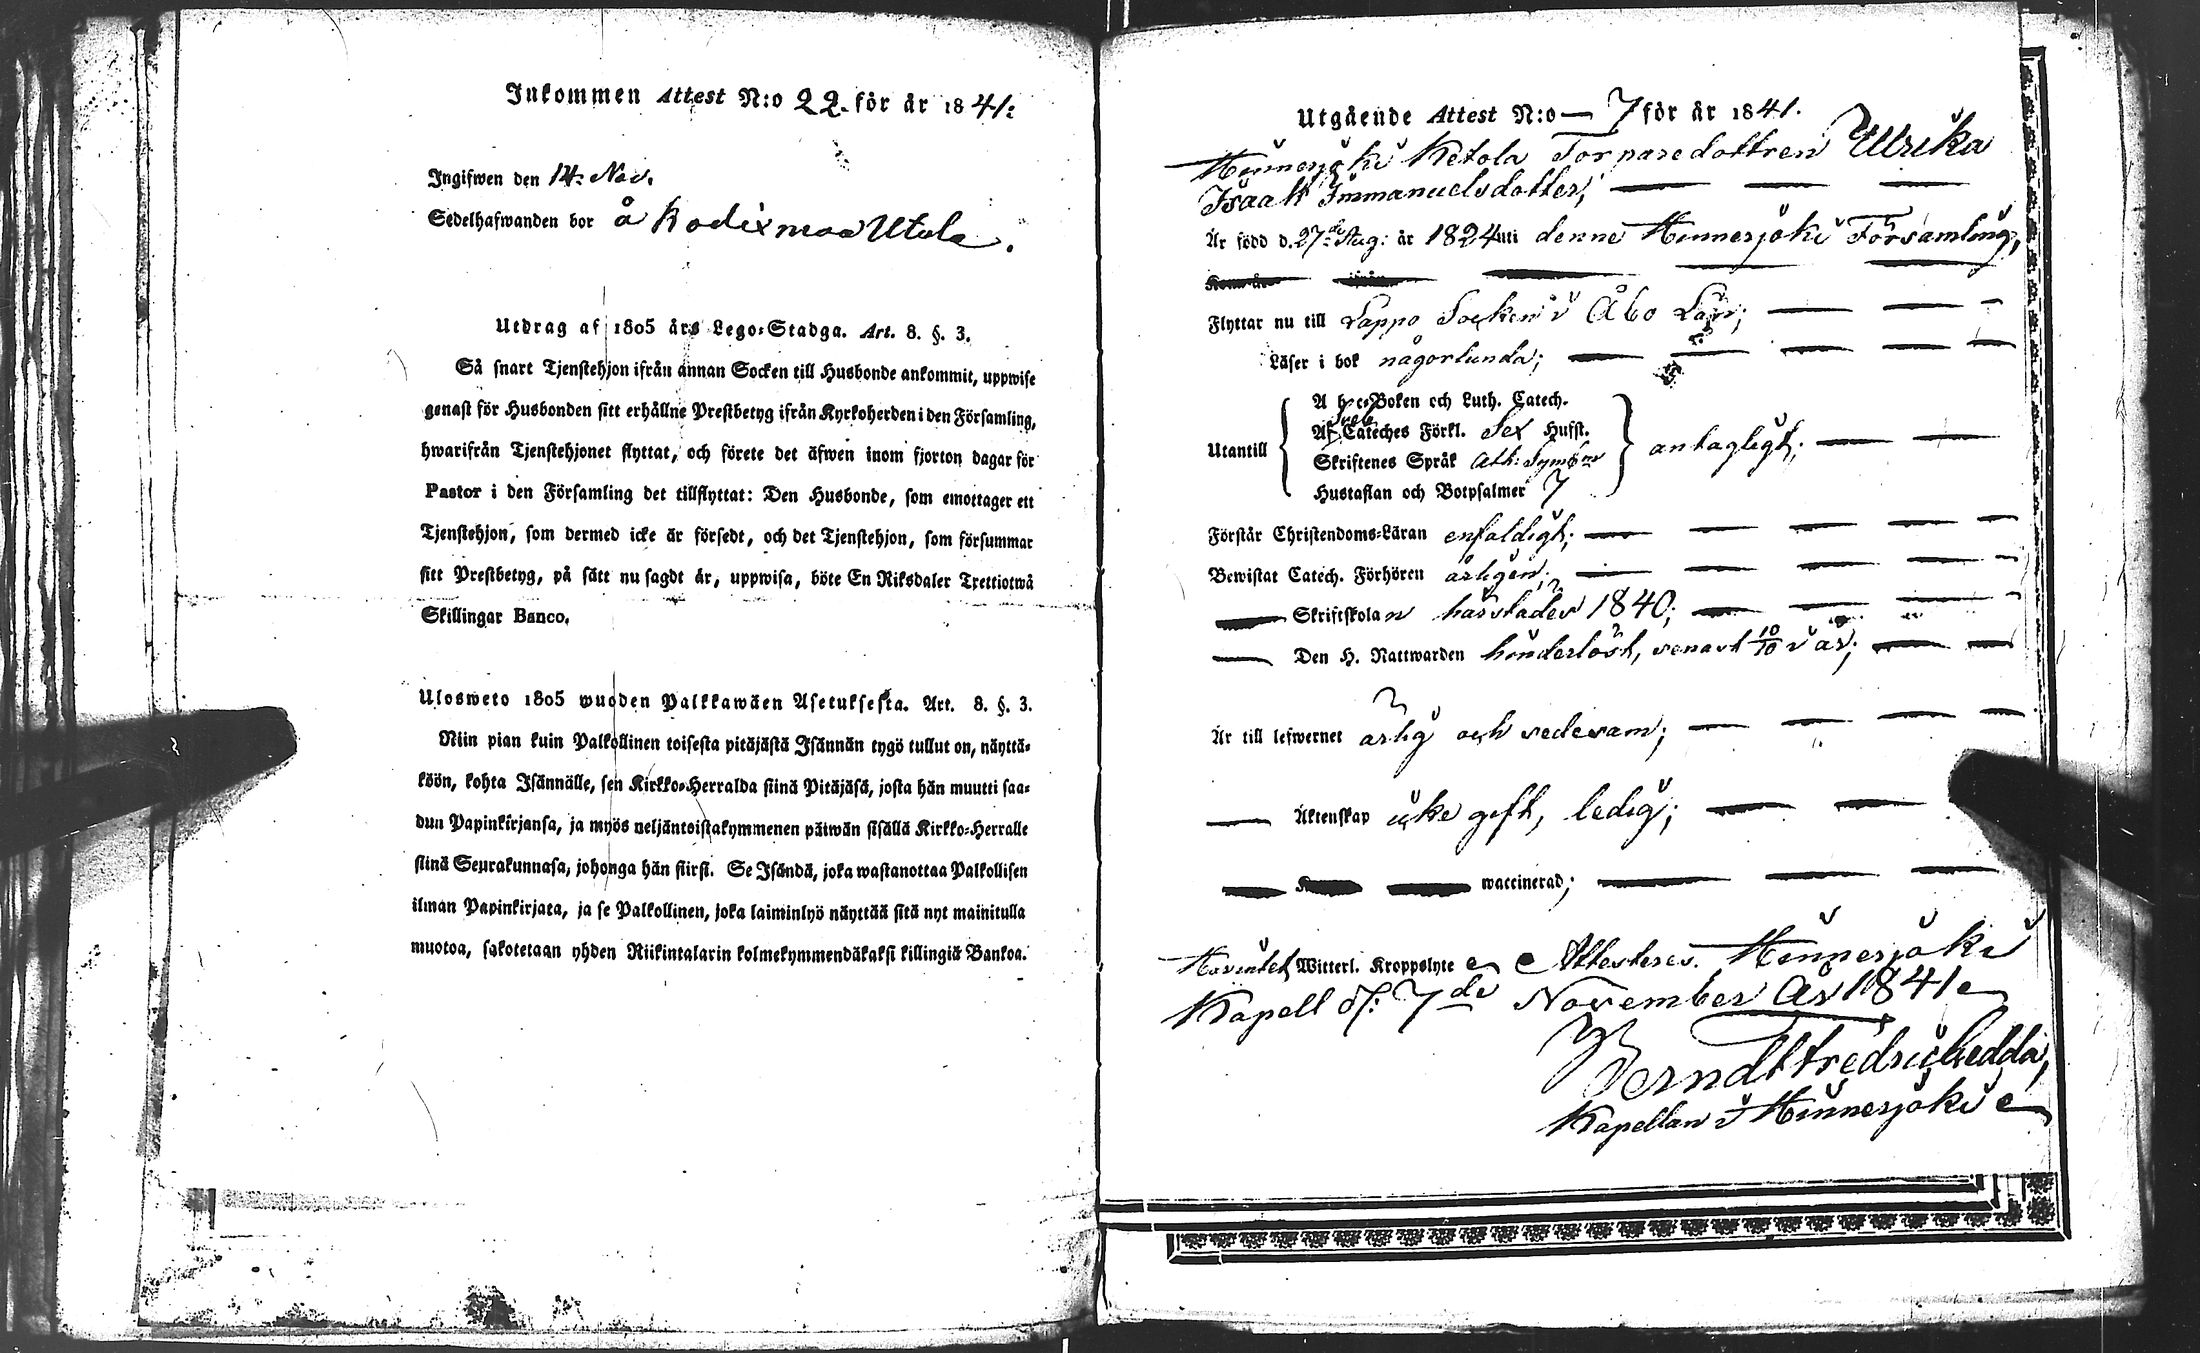 Inkommen Attest N:o 22. för år 1841:
Ingifwen den 14: Nov.
Sedelhafwanden bor å Kodixmaa Utola.
Utdrag af 1805 års Lego-Stadga. Art. 8. §. 3.
Så snart Tjenstehjon ifrån annan Socken till Husbonde ankommit, uppwise
genast för Husbonden sitt erhållne Prestbetyg ifrån Kyrkoherden i den Församling,
hwarifrån Tjenstehjonet flyttat, och förete det äfwen inom fjorton dagar för
Pastor i den Församling det tillflyttat: Den Husbonde, som emottager ett
Tjenstehjon, som dermed icke är försedt, och det Tjenstehjon, som försummar
sitt Prestbetyg, på sätt nu sagdt är, uppwisa, böte En Riksdaler Trettiotwå
Skillingar Banco.
Ulosweto 1805 wuoden Palkkawäen Asetuksesta. Art. 8. §. 3.
Niin pian kuin Palkollinen toisesta pitäjästä Isännän tygö tullut on, näyttä-
köön, kohta Isännälle, sen Kirkko-Herralda siinä Pitäjäsä, josta hän muutti saa-
dun Papinkirjansa, ja myös neljäntoistakymmenen päiwän sisällä Kirkko-Herralle
siinä Seurakunnasa, johonga hän siirsi. Se Isändä, joka wastanottaa Palkollisen
ilman Papinkirjata, ja se Palkollinen, joka laiminlyö näyttää sitä nyt mainitulla
muotoa, sakotetaan yhden Riikintalarin kolmekymmendäkaksi killingiä Bankoa.
Utgående Attest N:o — 7 för år 1841.
Hinnerjoki Ketola Torparedottren Ullrika
Isaak Immanuelsdotter;
Är född d. 27:de Aug: år 1824 uti denne Hinnerjoki Församling,
Flyttar nu till Lappo Socken i Åbo Län;
Läser i bok någorlunda;
Utantill
A b c-Boken och Luth. Catech.
Cateches Förkl. Sex Husst.
Skriftenes Språk Ath: Symb:
Hustaflan och Botpsalmer 7
antagligt;
Förstår Christendoms-Läran enfaldigt;
Bewistat Catech. Förhören årligen;
Skriftskolan härstädes 1840;
Den H. Nattwarden hinderlöst, senast 10/10 i år;
Är till lefwernet ärlig och sedesam;
Äktenskap icke gift, ledig;
waccinerad;
Witterl. Kroppslyte Attesteres. Hinnerjoki
Kapell d: 7de November År 1841
Berndt Fredric Hedda,
Kapellan i Hinnerjoki